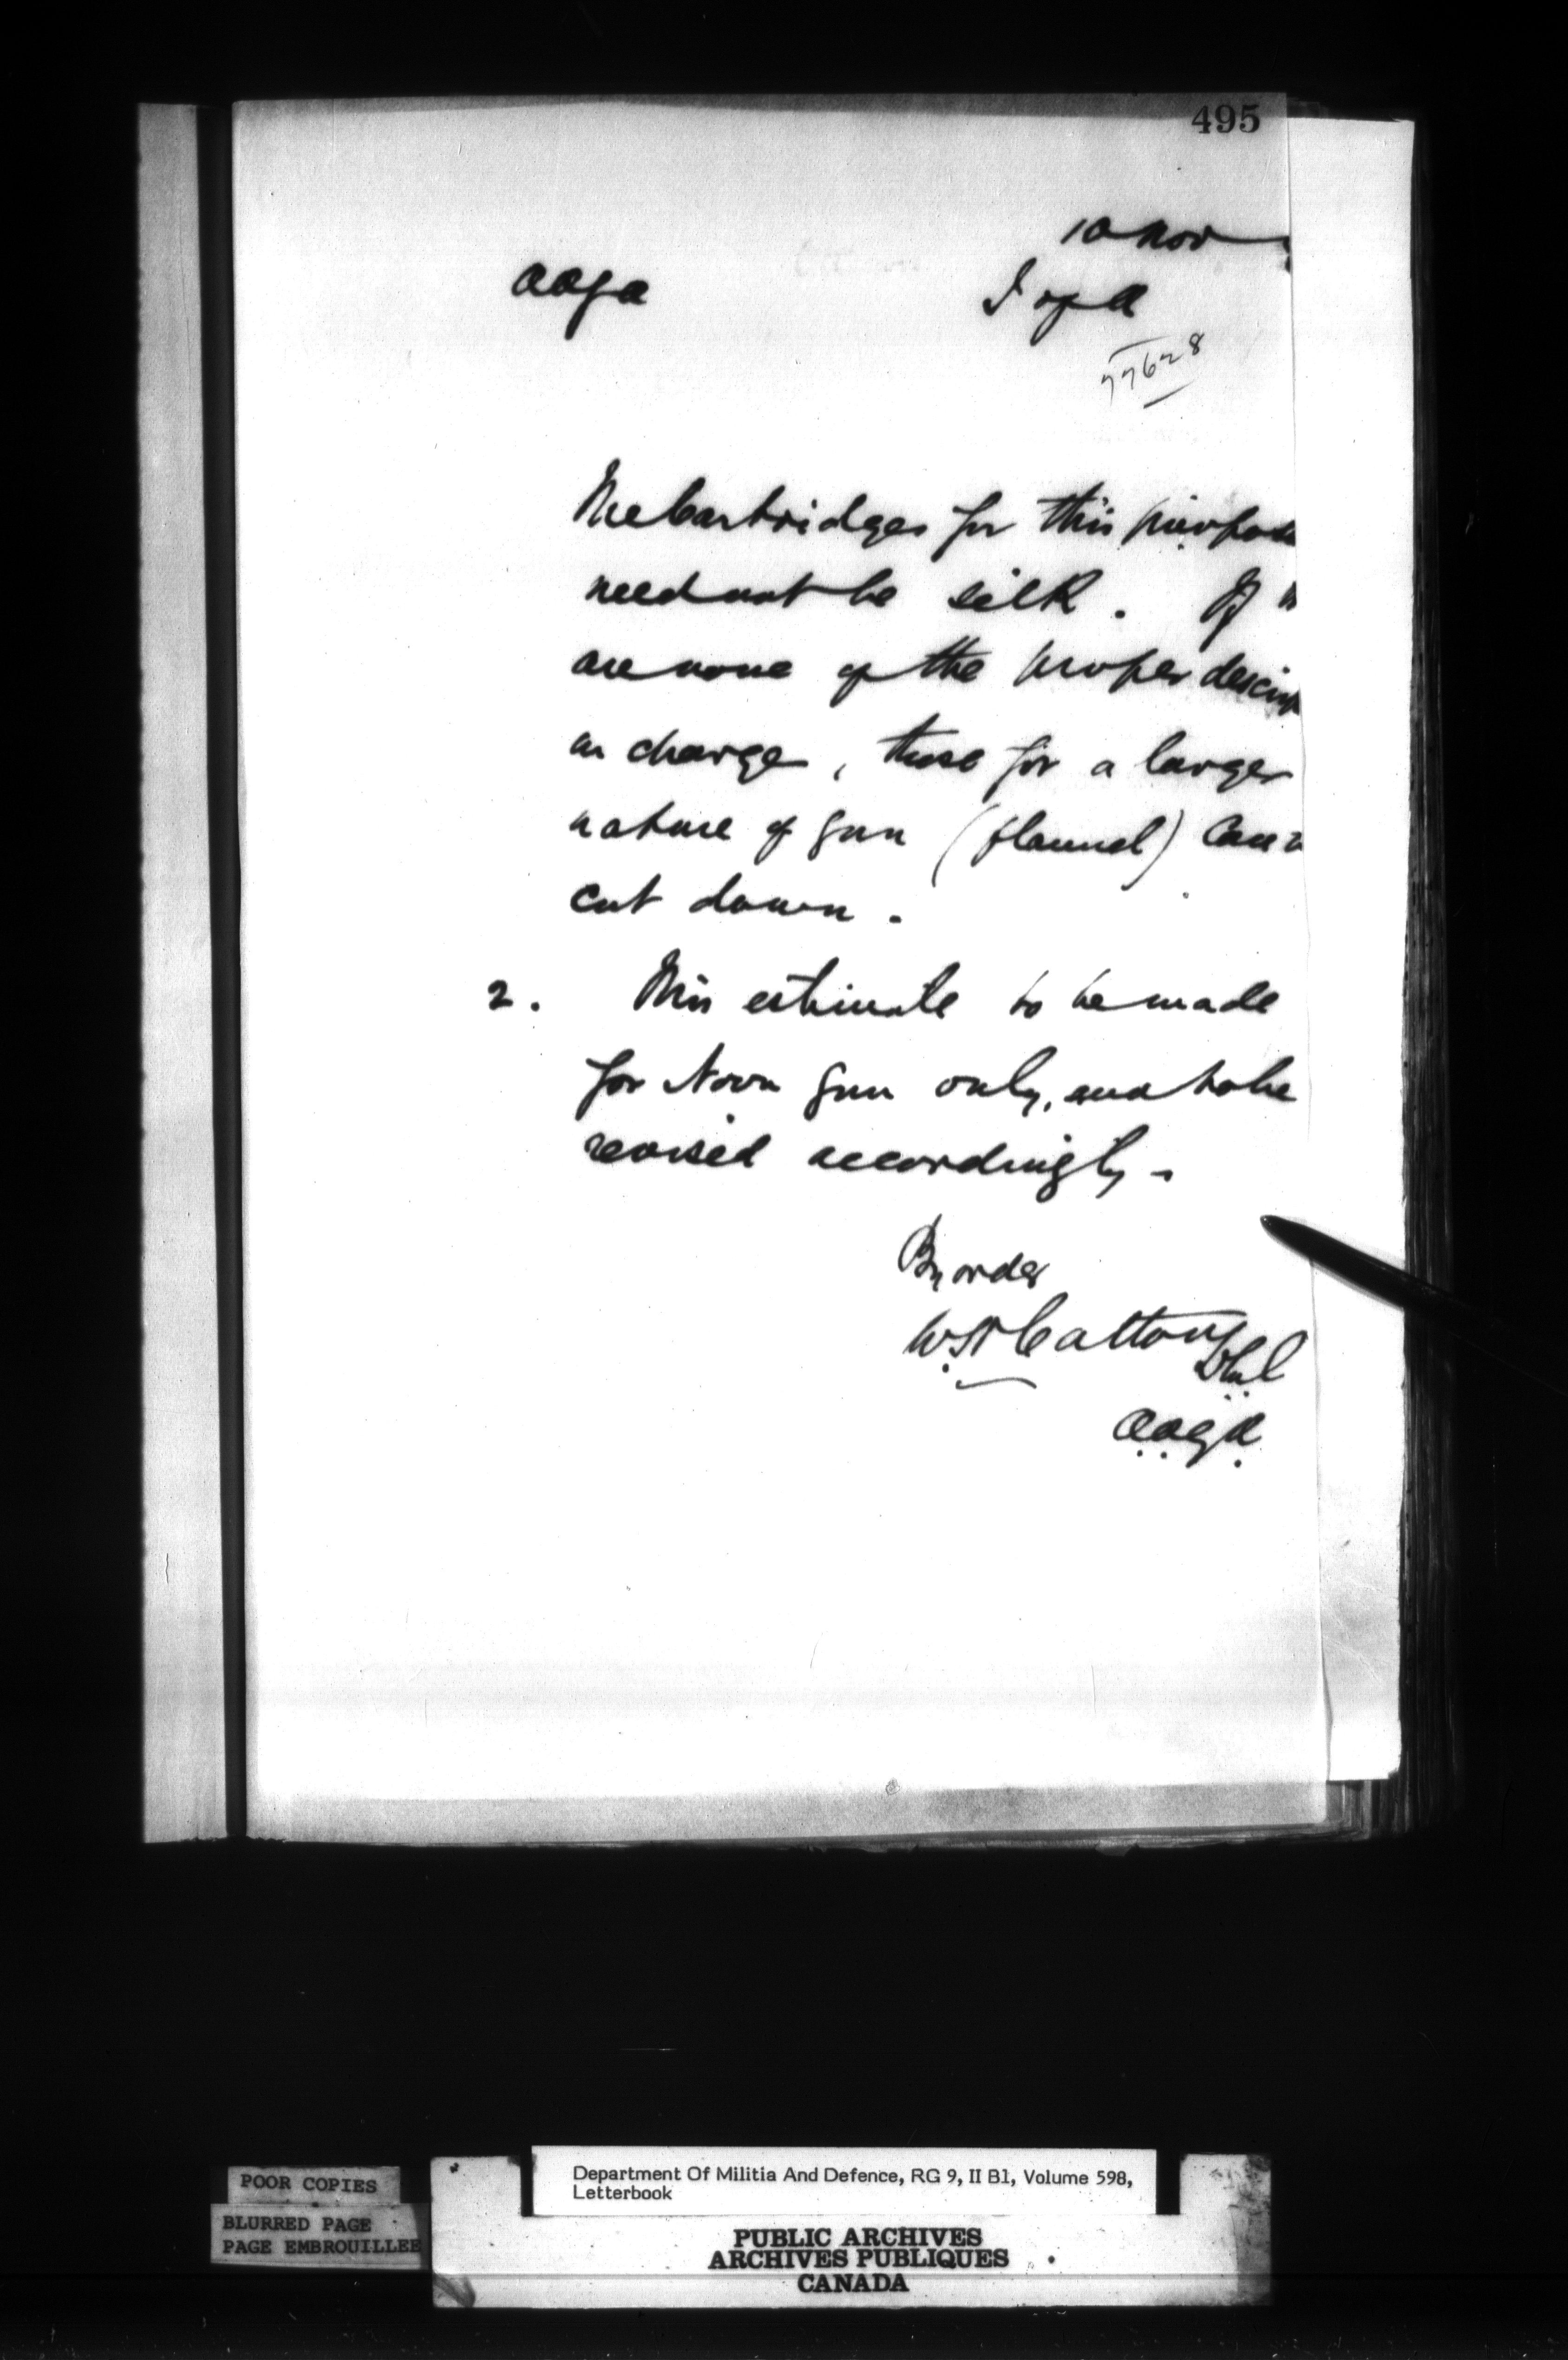 495
10 Nov
AAGA
I of A
77628
The Cartridges for this purpose
need not be silk. If
are none of the proper descrip
on charge, those for a larger
nature of gun (flannel) can
cut down.
2. This estimate to be made
for Noon gun only, and to be
revised accordingly.
By order
Cotton
AAGA
POOR COPIES
BLURRED PAGE
PAGE EMBROUILLEE
Department Of Militia And Defence, RG 9, II B1, Volume 598,
Letterbook
PUBLIC ARCHIVES
ARCHIVES PUBLIQUES
CANADA